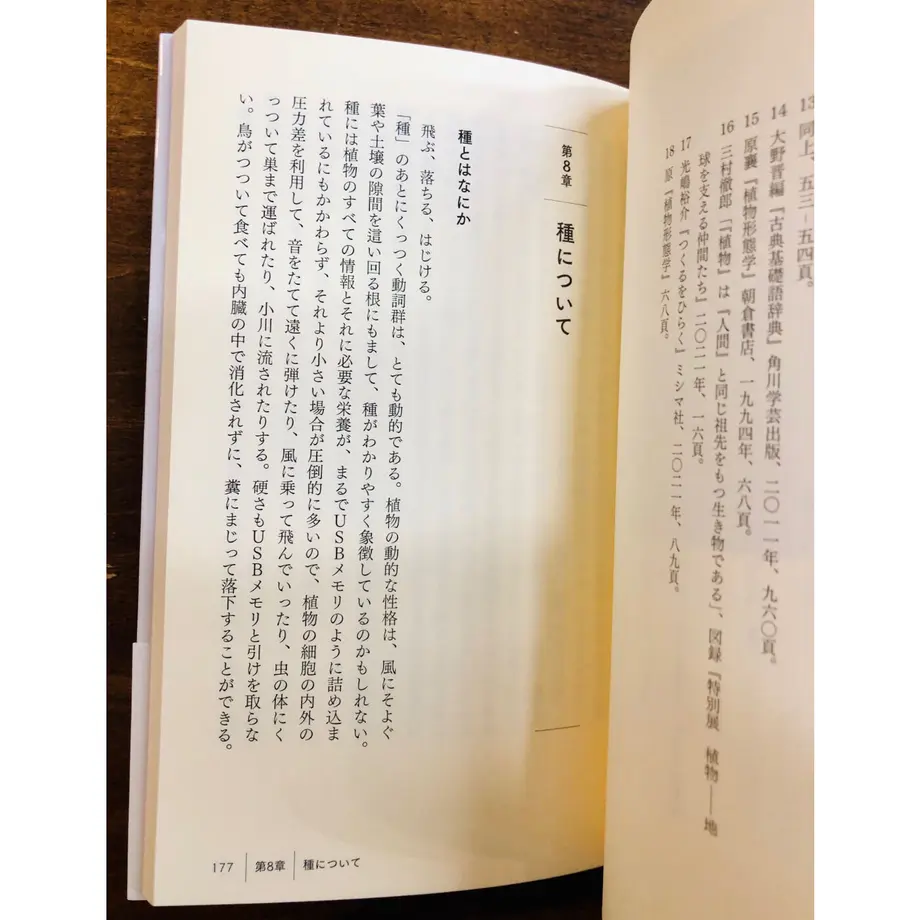 13 同上、五三-五四頁。
14 大野晋編『古典基礎語辞典』角川学芸出版、二〇一一年、九六〇頁。
15 原襄『植物形態学』朝倉書店、一九九四年、六八頁。
16 三村徹郎「『植物』は『人間』と同じ祖先をもつ生き物である」、図録『特別展 植物——地
球を支える仲間たち』二〇二一年、一六頁。
17 光嶋裕介『つくるをひらく』ミシマ社、二〇二一年、八九頁。
18 原『植物形態学』六八頁。
第8章 種について
種とはなにか
飛ぶ、落ちる、はじける。
「種」のあとにくっつく動詞群は、とても動的である。植物の動的な性格は、風にそよぐ
葉や土壌の隙間を這い回る根にもまして、種がわかりやすく象徴しているのかもしれない。
種には植物のすべての情報とそれに必要な栄養が、まるでUSBメモリのように詰め込ま
れているにもかかわらず、それより小さい場合が圧倒的に多いので、植物の細胞の内外の
圧力差を利用して、音をたてて遠くに弾けたり、風に乗って飛んでいったり、虫の体にく
っついて巣まで運ばれたり、小川に流されたりする。硬さもUSBメモリと引けを取らな
い。鳥がつついて食べても内臓の中で消化されずに、糞にまじって落下することができる。
177 第8章 種について